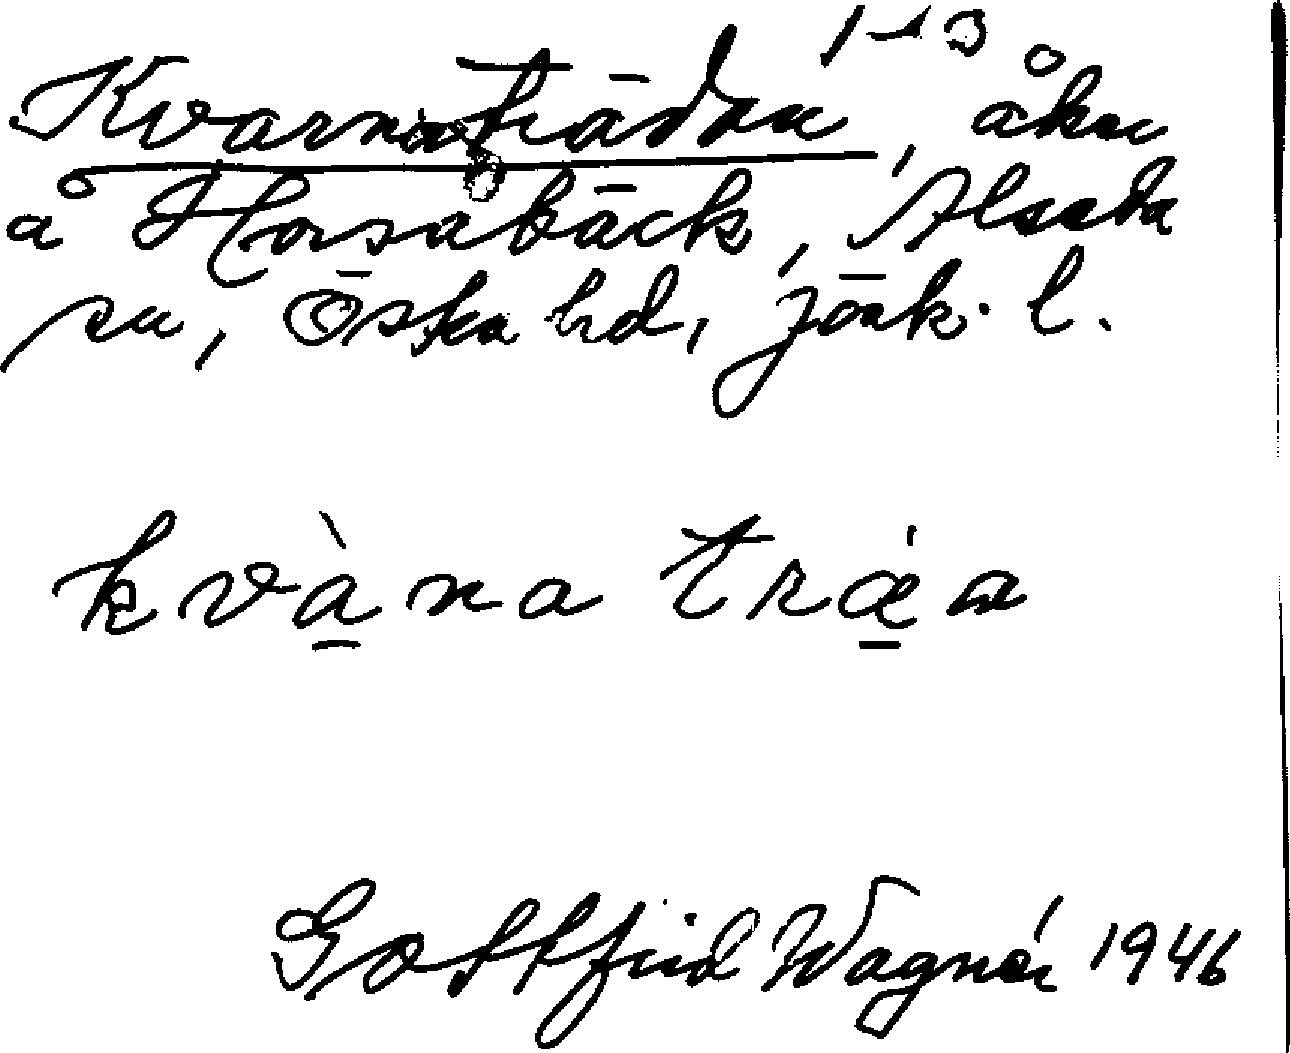 1-3
Kvarnaträden, åker
å Horsabäck, Alseda
sn, Östra hd, Jönk. l.
kvàna trǽa
Gottfrid Wagnér 1946